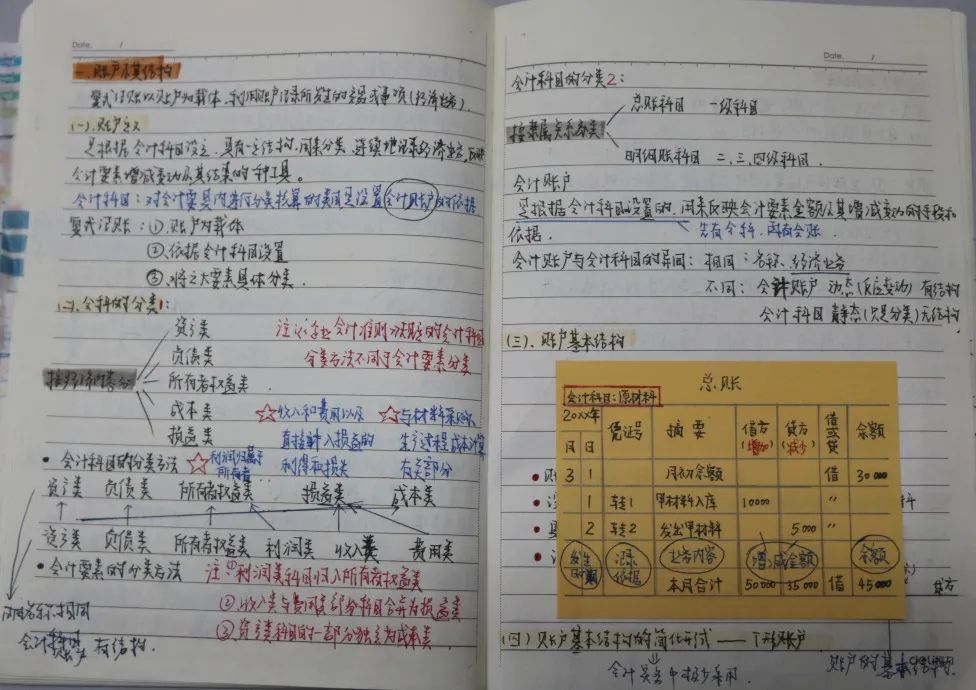 Date. /
一、账户及其结构
复式记账以账户为载体,利用账户记录所发生的交易或事项(经济业务).
(一).账户定义
是根据会计科目设立,具有一定结构,用来分类、连续地记录经济业务,反映
会计要素增减变动及其结果的一种工具。
会计科目:对会计要素内容进行分类核算的类目是设置会计账户的依据
复式记账:①.账户为载体
②.依据会计科目设置
③.将六大要素具体分类.
(二).会科的分类1:
按经济内容分
资产类
负债类
所有者权益类.
成本类
损益类
注:《企业会计准则》规定的会计科目
分类方法不同于会计要素分类
☆收入和费用以及
直接计入损益的
利得和损失
☆与材料采购
生产过程成本计算
有关部分
• 会计科目的分类方法
☆利润归属于
所有者
资产类 负债类 所有者权益类 损益类 成本类
资产类 负债类 所有者权益类 利润类 收入类 费用类
• 会计要素的分类方法 注:①利润类科目归入所有者权益类
②.收入类与费用类部分科目合并为损益类
③.资产类科目的一部分独立为成本类.
有结构.
Date. /
会计科目的分类2:
按隶属关系分类
总账科目 一级科目
明细账科目 二、三、四级科目.
会计账户
是根据会计科目设置的,用来反映会计要素金额及其增减变动的手段和
依据.
先有会科,再有会账.
会计账户与会计科目的异同:相同:名称、经济业务
不同:会计账户 动态(反应变动) 有结构
会计科目 静态(只是分类)无结构.
(三).账户基本结构
总账
会计科目:原材料
20××年 凭证号 摘要 借方(增加) 贷方(减少) 借或贷 余额
月 日
3 1 月初余额 借 30000
1 转1 甲材料入库 10000 〃
2 转2 发出甲材料 5000 〃
发生日期 记录依据 业务内容 增、减金额 余额
本月合计 50000 35000 借 45000
贷方
(四)账户基本结构的简化形式——T形账户
会计实务中极少采用